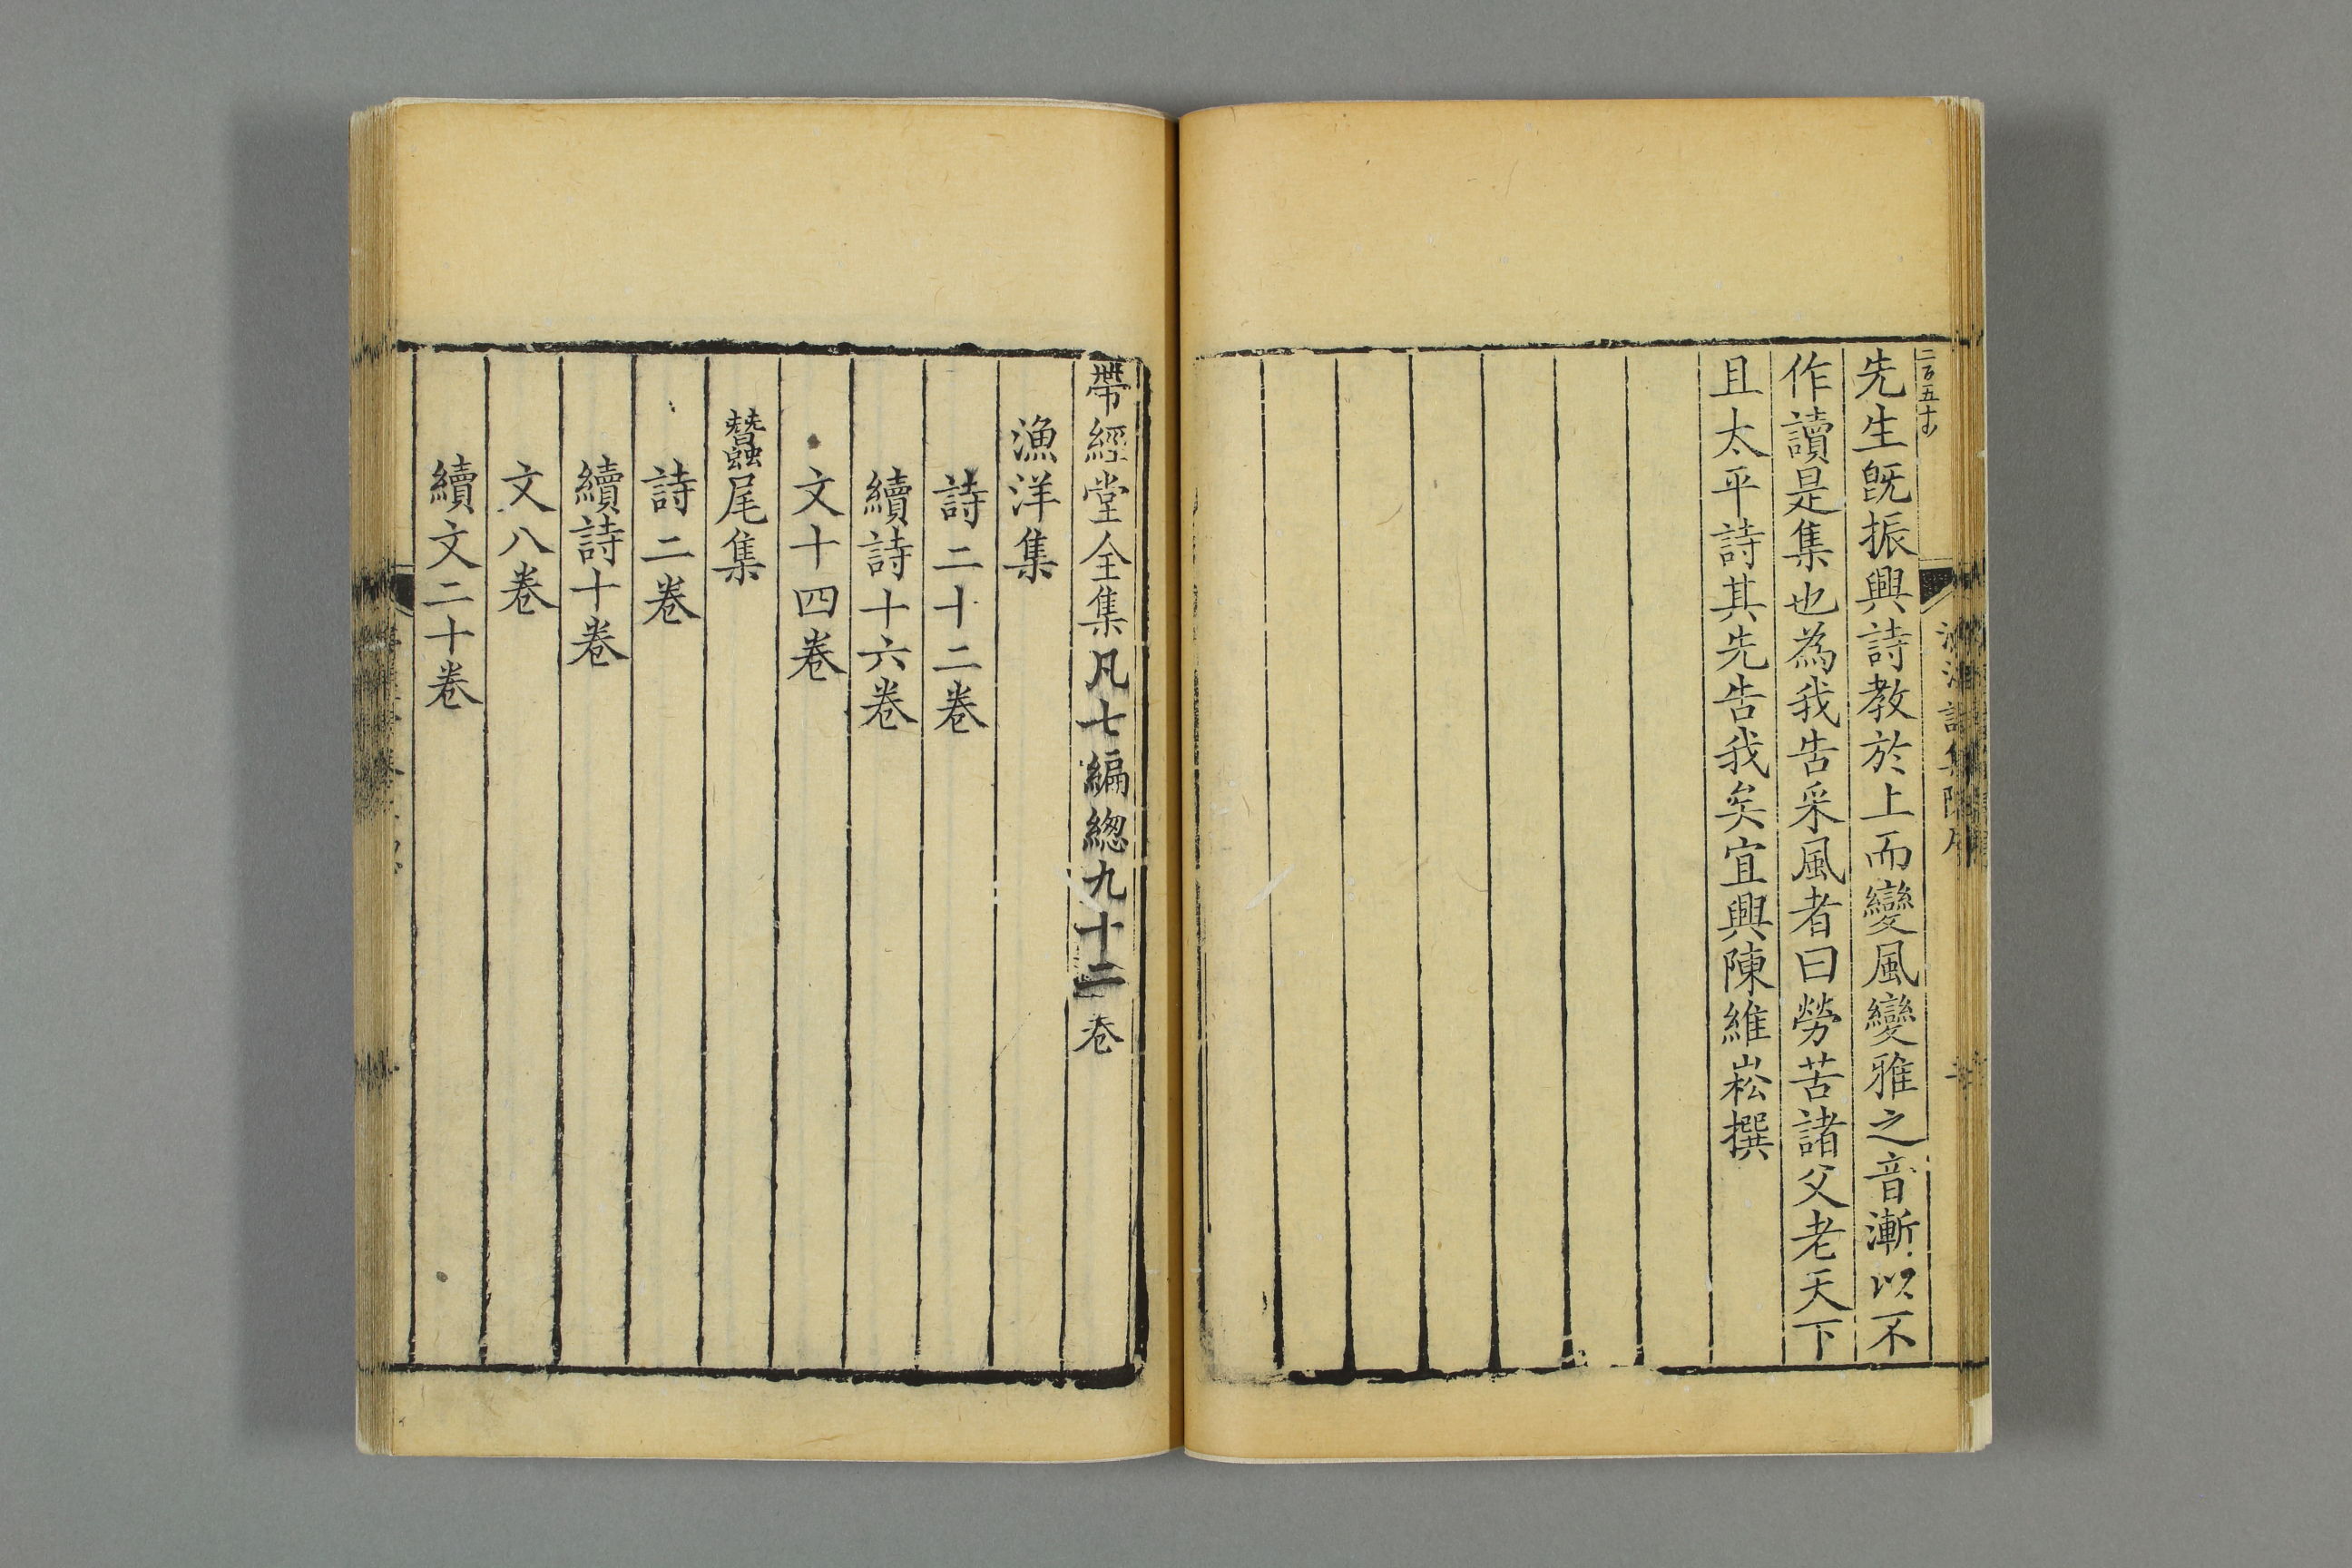 先生旣振興詩教於上而變風變雅之音漸以不
作讀是集也為我告采風者曰勞苦諸父老天下
且太平詩其先告我矣宜興陳維崧撰
帶經堂全集凡七編總九十二卷
漁洋集
詩二十二卷
續詩十六卷
文十四卷
蠶尾集
詩二卷
續詩十卷
文八卷
續文二十卷